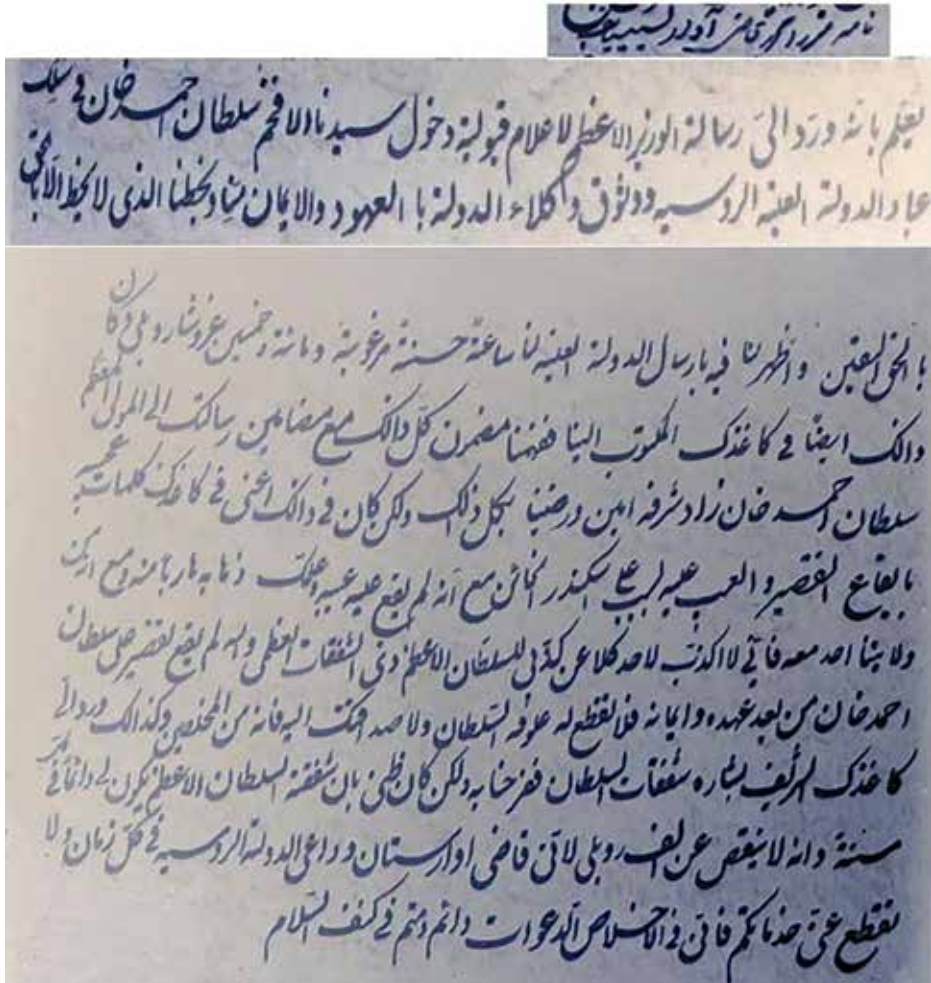 نامه مرزا محمد قاضی آوار
ليعلم بانه ورد الىّ رسالة الوزير الاعظم لاعلام قبولية دخول سيدنا الافخم سلطان احمد خان في سلك
عباد الدولة العلية الروسيه ووثوق وكلاء الدولة با العهود والايمان منا وبخطنا الذى لا يخط الا
با الحق اليقين واظهرنا فيه بارسال الدولة العليه لنا ساعة حسنة مرغوبة ومائة وخمسين روبلى وكان
ذالك ايضا في كاغذك المكتوب الينا ففهمنا مضمون كل ذالك مع مضامين رسالتك الى المولى المعظم
سلطان احمد خان زاد شرفه امين ورضينا بكل ذلك ولكن كان في ذالك اعنى في كاغذك كلمات عجيبه
بايقاع التقصير و العيب عليه على اسكندر الخائن مع انه لم يقع عليه ذهابه هاربا منه ومع
ولا احد معه فانّى لا اكذب لاحد كلا عن كذبى للسلطان الاعظم ذى الشفقات العظمى والله لم يقع تقصير على سلطان
احمد خان من بعد عهده وايمانه فلا تقطع له علوفه السلطان ولا اليه فانه من المخلصين وكذالك ورد الىّ
كاغذك الشريف بشاره شفقات السلطان ففرحنا به ولكن كان ظنى بان شفقة السلطان الاعظم يكون لى دائما في كل
سنة وانه لا ينقص عن الف روبلى لانّى قاضى اوارستان وداعى الدولة الروسيه في كل زمان ولا
تقطع عنّى فانّى في الاخلاص الدعوات دائم دمتم في كنف السلام